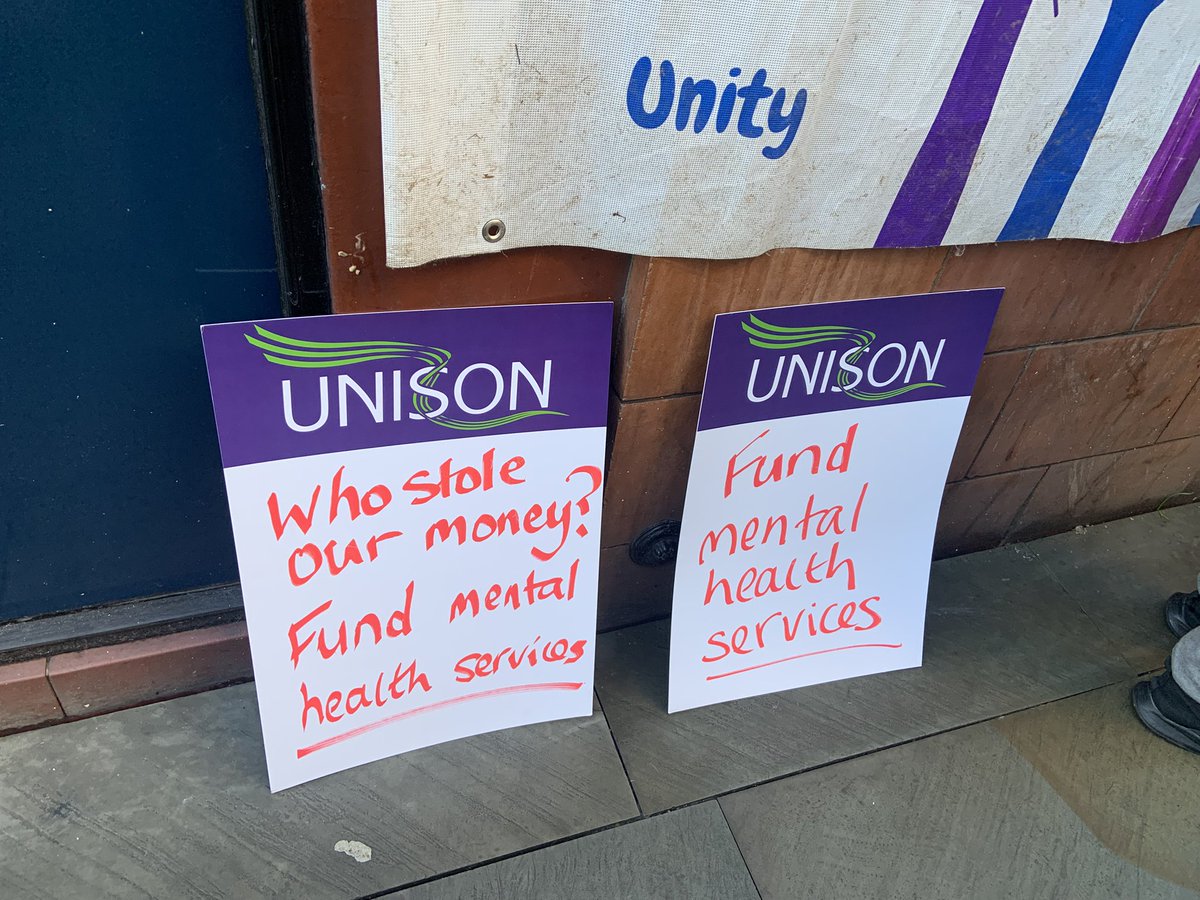 Unity
UNISON
Who stole
our money?
Fund mental
health services
UNISON
Fund
mental
health
services